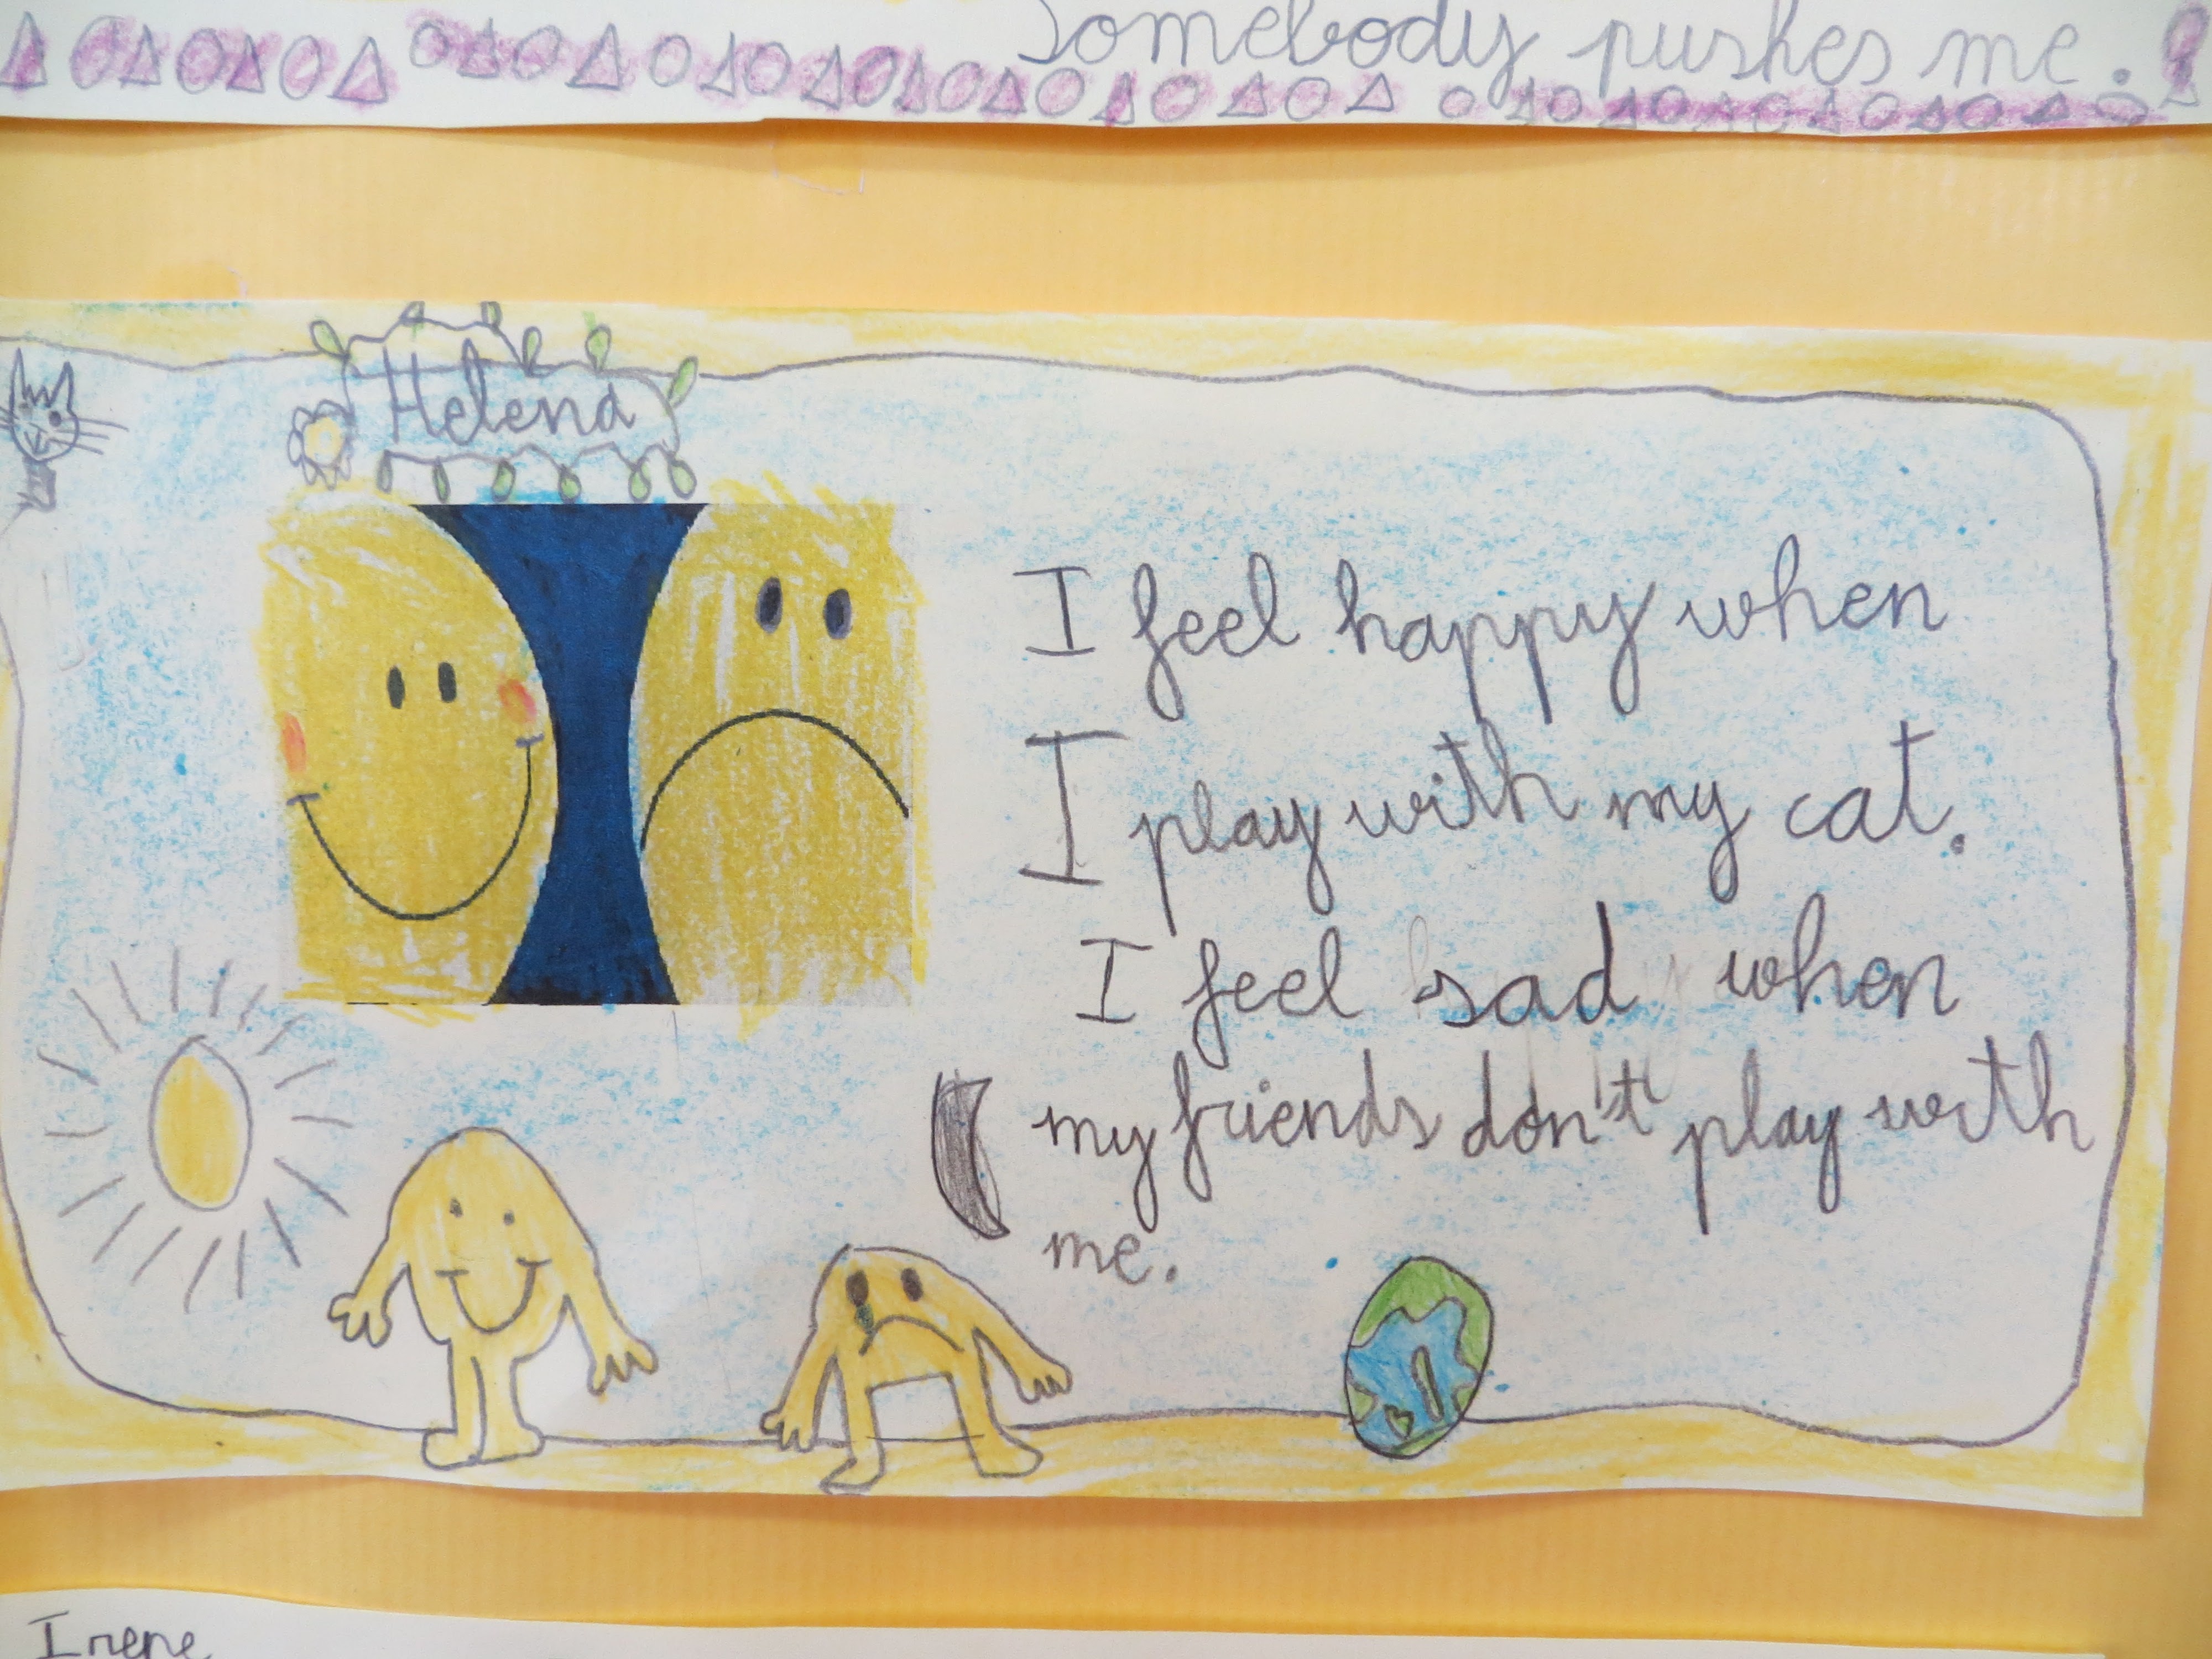 Somebody pushes me.
Helena
I feel happy when
I play with my cat.
I feel sad when
my friends don't play with
me.
Irene